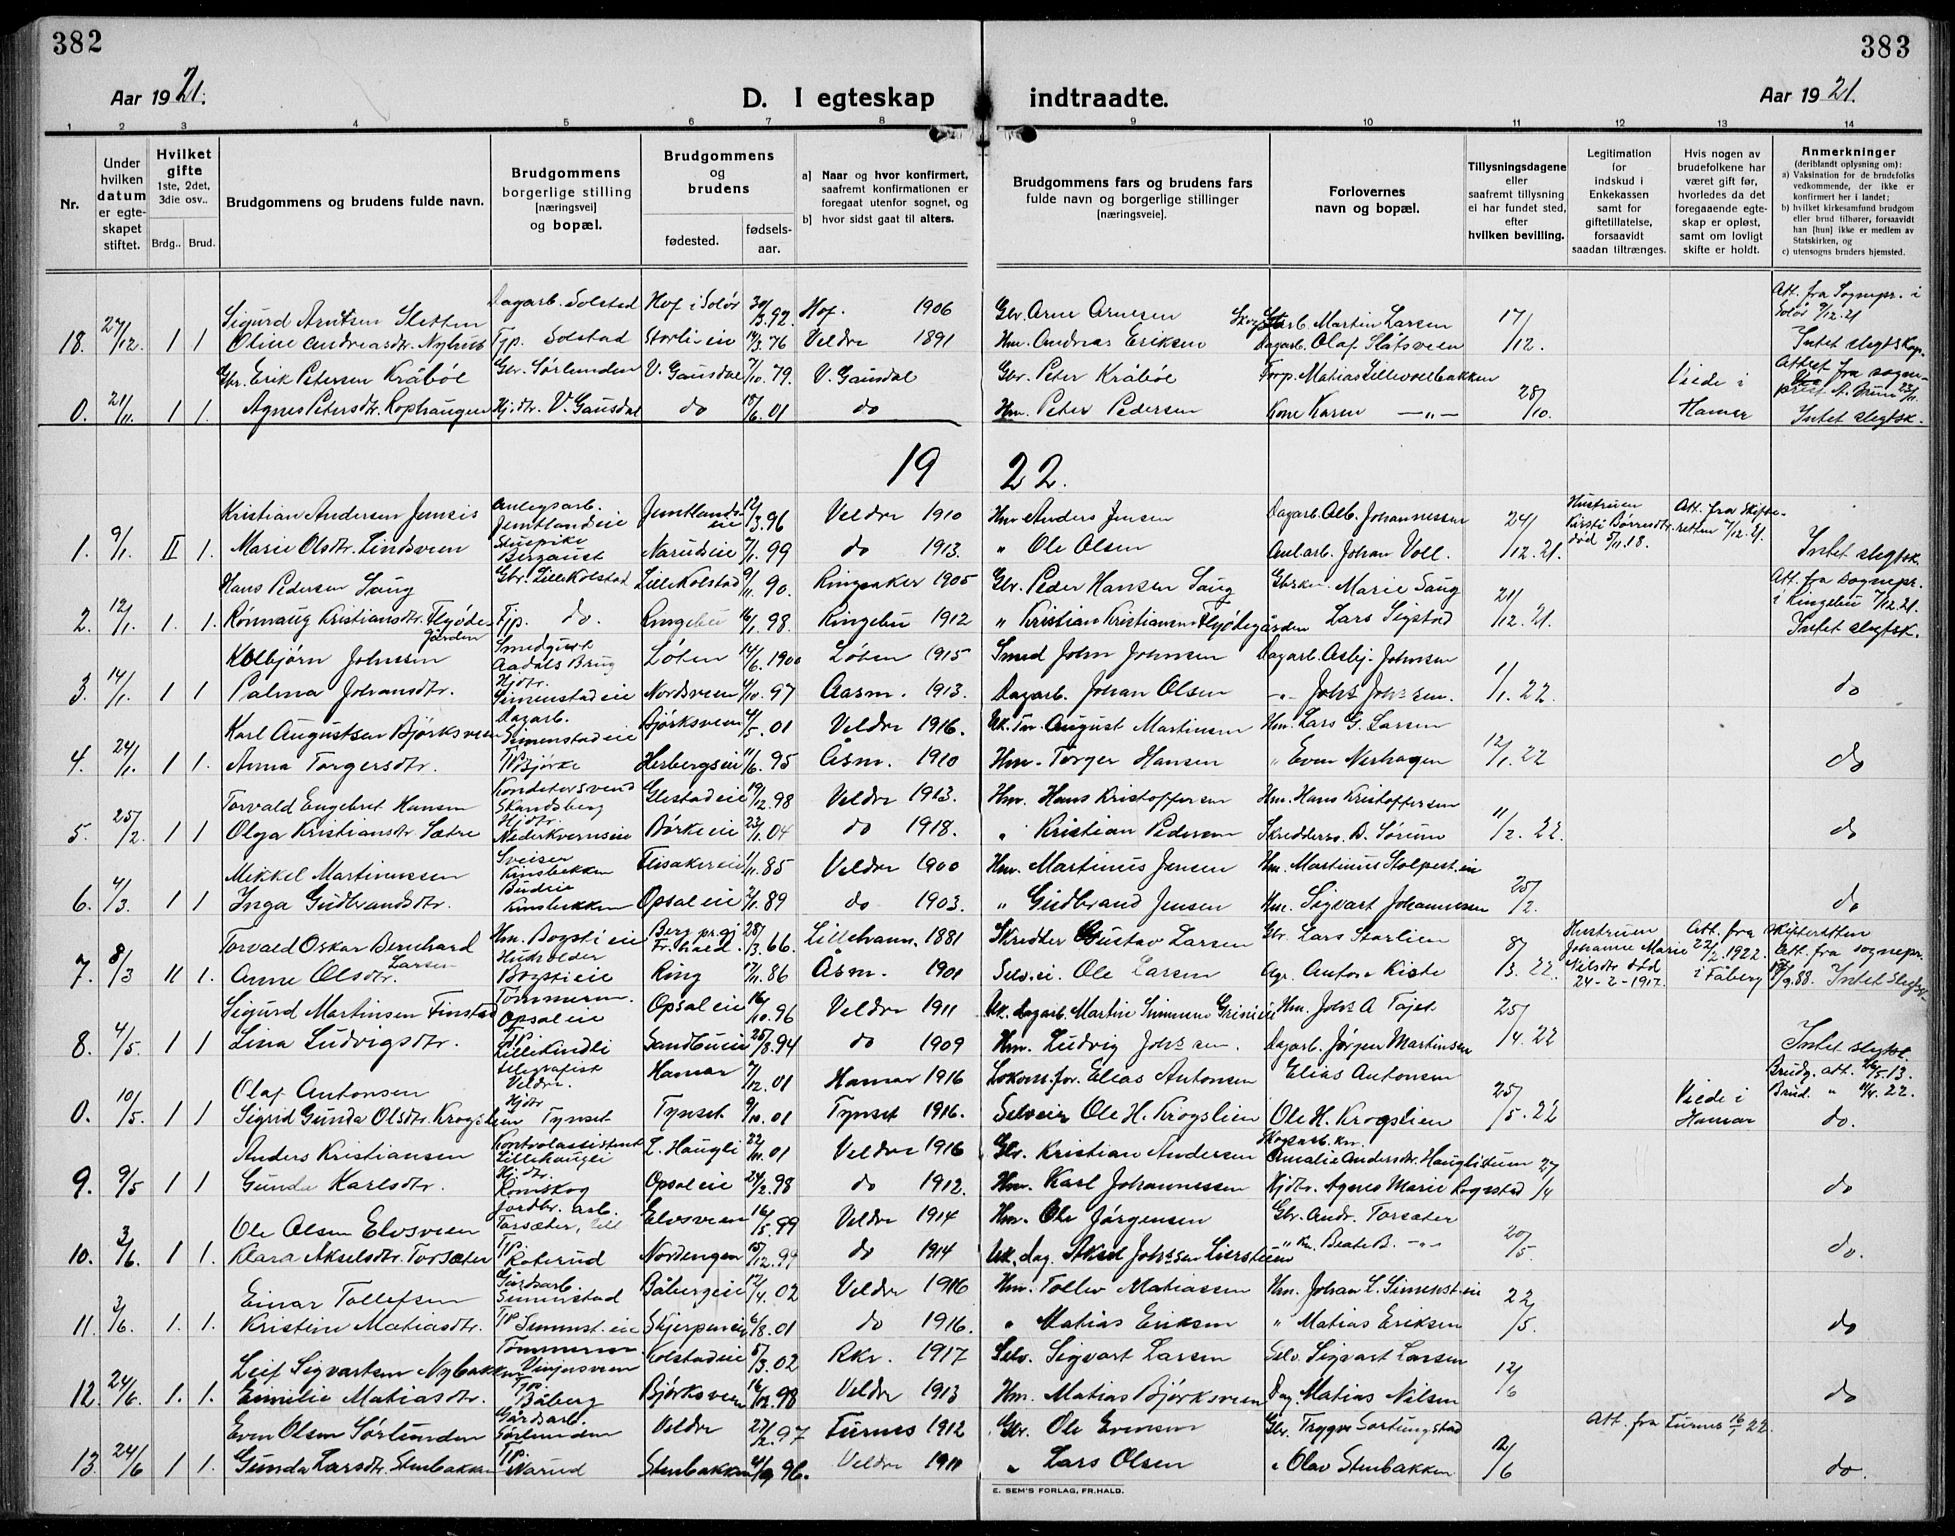 382
383
Aar 1921.
D. I egteskap indtraadte.
Aar 1921.
1 2 3 4 5 6 7 8 9 10 11 12 13 14
Nr.
Under hvilken datum er egteskapet stiftet.
Hvilket gifte 1ste, 2det, 3die osv..
Brdg.. Brud.
Brudgommens og brudens fulde navn.
Brudgommens borgerlige stilling [næringsvei] og bopæl.
Brudgommens og brudens
fødested.
fødselsaar.
a) Naar og hvor konfirmert, saafremt konfirmationen er foregaat utenfor sognet, og
b) hvor sidst gaat til alters.
Brudgommens fars og brudens fars fulde navn og borgerlige stillinger [næringsveie].
Forlovernes navn og bopæl.
Tillysningsdagene eller saafremt tillysning ei har fundet sted, efter hvilken bevilling.
Legitimation for indskud i Enkekassen samt for giftetillatelse, forsaavidt saadan tiltrænges.
Hvis nogen av brudefolkene har været gift før, hvorledes da det foregaaende egteskap er opløst, samt om lovligt skifte er holdt.
Anmerkninger (deriblandt oplysning om):
a) Vaksination for de brudefolks vedkommende, der ikke er konfirmert her i landet;
b) hvilket kirkesamfund brudgom eller brud tilhører, forsaavidt han [hun] ikke er medlem av Statskirken, og
c) utensogns bruders hjemsted.
Sigurd Arntsen Sletten Dagarb. Solstad Hof i Solør 30/3.92. Hof. 1906 Gbr. Arne Arnesen Skogarb. Martin Larsen 17/12. Att. fra Sognepr. i Solør 9/12.21
18. 27/12. 1 1 Oline Andreasdtr. Nyhus Tjp. Solstad Storli eie 14/3 76 Veldre 1891 Hm. Andreas Eriksen Dagarb. Olaf Slåtsveen Intet slegtskap.
Gbr. Erik Petersen Kråbøl Gbr. Sørlunden V. Gausdal 7/10 79. V. Gausdal Gbr. Peter Kråbøl Torp. Matias Lillevolbakken 28/10 Viede i Hamar Attest fra sogneprest A. Bruun 23/11.
0. 21/11. 1 1 Agnes Petersdtr. Rophaugen Hjdtr. V. Gausdal do 18/6 01 do Hm. Peter Pedersen Kone Karen —"— Intet slegtsk.
1922.
Kristian Andersen Jemeis Anlegsarb. Jemtlandseie Jemtlandseie 12/3.96 Veldre 1910 Hm Anders Jensen Dagarb. Alb. Johannessen 24/12.21. Hustruen Kirsti Børresdtr. død 5/11.18. Att. fra Skifteretten 7/12.21.
1. 9/1. II 1. Marie Olsdtr. Lindsveen Stuepike Bergaust Narudseie 7/1 99 do 1913. " Ole Olsen Anl.arb. Johan Voll. Intet slegtsk.
Hans Pedersen Saug Gbr. Lillekolstad Lillekolstad 9/11 90. Ringsaker 1905 Gbr. Peder Hansen Saug Marie Saug 21/12.21. Att. fra Sognepr. i Ringebu 7/12.21.
2. 12/1. 1. 1. Rønnaug Kristiansdtr. Flyødegården Tjp. do. Ringebu 16/1 98. Ringebu 1912 " Kristian Kristiansen Flyødegården Lars Sigstad Intet slegtsk.
Kolbjørn Johnsen Smedgutt Aadals Brug Løten 14/6 1900 Løten 1915 Smed John Johnsen Dagarb. Asbj. Johnsen 1/1.22.
3. 14/1. 1 1 Palma Johansdtr. Hjdtr. Simenstadeie Nordsveen 4/10. 97 Aasm. 1913. Dagarb. Johan Olsen —"— Johs Johssen. do
Karl Augustsen Bjørksveen Dagarb. Simenstadeie Bjørksveen 4/5. 01 Veldre 1916. August Martinsen Hm. Lars G. Larsen 12/1.22
4. 24/1. 1 1. Anna Torgersdtr. Tp Bjørke Herbergseie 11/6. 95 Åsm. 1910 Hm. Torger Hansen " Even Nerhagen do
Torvald Engebret Hansen Konditorsvend Skandsberg Glestad eie 19/12. 98 Veldre 1913. Hm. Hans Kristoffersen Hm. Hans Kristoffersen 11/2.22.
5. 25/2. 1 1 Olga Kristiansdtr Sætre Hjdtr. Nederkvernseie Børke eie 23/1. 04 do 1918. " Kristian Pedersen Skredders. B. Sørum do
Mikkel Martinussen Sveiser Kinsbekken Flisaker eie 1/11. 85 Veldre 1900 Hm. Martinus Jensen Hm. Martinus Stolpest. eie 25/2.
6. 4/3. 1 1 Inga Gudbrandsdtr. Budeie Kinsbekken Opsal eie 2/1. 89 do 1903. " Gudbrand Jensen Hm. Sigvart Johannessen do
Torvald Oskar Bernhard Larsen Hm. Bogsti eie Berg pr.gj Fr.hald. 28/3.66. Lillehamm. 1881 Skredder Gustav Larsen Gbr. Lars Storlien 8/3.22. Hustruen Johanne Marie Nilsdtr død 24-2-1917. Att. fra Skifteretten 22/2.1922. i Fåberg
7. 8/3 II 1. Anne Olsdtr. Husholder Bogsti eie Ring 17/11. 86 Åsm. 1901 Selv.ei. Ole Larsen Agr. Antore Kiste Att. fra sognepr. 17/9.88. Intet slegtsk
Sigurd Martinsen Finstad Tømmerm. Opsal eie Opsal eie 16/10 96 Veldre 1911 Uk. dagarb. Martin Simensen Grini eie Hm. Johs A Tajet 25/4.22
8. 4/5. 1 1 Lina Ludvigsdtr. Tp. Lillekindli Sandbueie 25/8.94 do 1909 Hm. Ludvig Johssen. Dagarb. Jørgen Martinsen Intet slegtsk.
Olaf Antonsen Telegrafist Veldre. Hamar 7/12. 01 Hamar 1916 Lokom.før. Elias Antonsen Elias Antonsen 25/5.22 Viede i Hamar Brudg. att. 26/5.13. Brud. " 11/4.22.
0. 10/5. 1 1 Sigrid Gunda Olsdtr. Krogslien Hjdtr Tynset Tynset 9/10. 01 Tynset 1916. Selveier Ole H. Krogslien Ole H. Krogslien do.
Anders Kristiansen Kontrolassistent Lillehaugli L. Haugli 22/11. 01 Veldre 1916 Gbr. Kristian Andersen Amalie Andersdtr. Hauglistuen 27/4
9. 9/5 1 1 Gunda Karlsdtr. Hjdtr. Romskog Opsal eie 24/2. 98 do 1912. Hm. Karl Johannessen Hjdtr. Agnes Marie Rogstad do
Ole Olsen Elvsveen Jordbr. arb. Torsæter, Elvsveen 16/5. 99 Veldre 1914 Hm. Ole Jørgensen Gbr. Andr. Torsæter 20/5.
10. 3/6. 1 1 Klara Akselsdtr. Torsæter Tp. Roterud Nordengen 15/12. 99 do 1914 Uk. dag. Aksel Johssen Liersteien " Kn. Beate B. —"— do.
Einar Tollefsen Gårdsarb. Simenstad Båbergeie 12/4. 02 Veldre 1916 Hm. Tollev Matiassen Hm. Johan L. Simenst. eie 22/5.
11. 3/6. 1. 1. Kristine Matiasdtr. Tp Simenst. eie Skjerpen eie 6/8. 01 do 1916. " Matias Eriksen " Matias Eriksen do
Leif Sigvartsen Nybakken Tømmerm. Vinjusveen Kolstadeie 5/3 02 Rkr. 1917 Selv. Sigvart Larsen Selv. Sigvart Larsen 12/6
12. 24/6. 1. 1. Emilie Matiasdtr. Tjp. Båberg Bjørksveen 16/12. 98 Veldre 1913 Hm. Matias Bjørksveen Dag. Matias Nilsen do
Even Olsen Sørlunden Gårdsarb. Sørlunden Veldre 27/2. 97 Furnes 1912 Gbr. Ole Evensen Gbr. Trygve Gortungstad 12/6 Att. fra Furnes 16/5 22.
13. 24/6 1 1. Gunda Larsdtr. Stenbakken Tjp. Narud Stenbakken 4/9 96. Veldre 1911 " Lars Olsen " Olav Stenbakken do.
E. SEM'S FORLAG, FR.HALD.